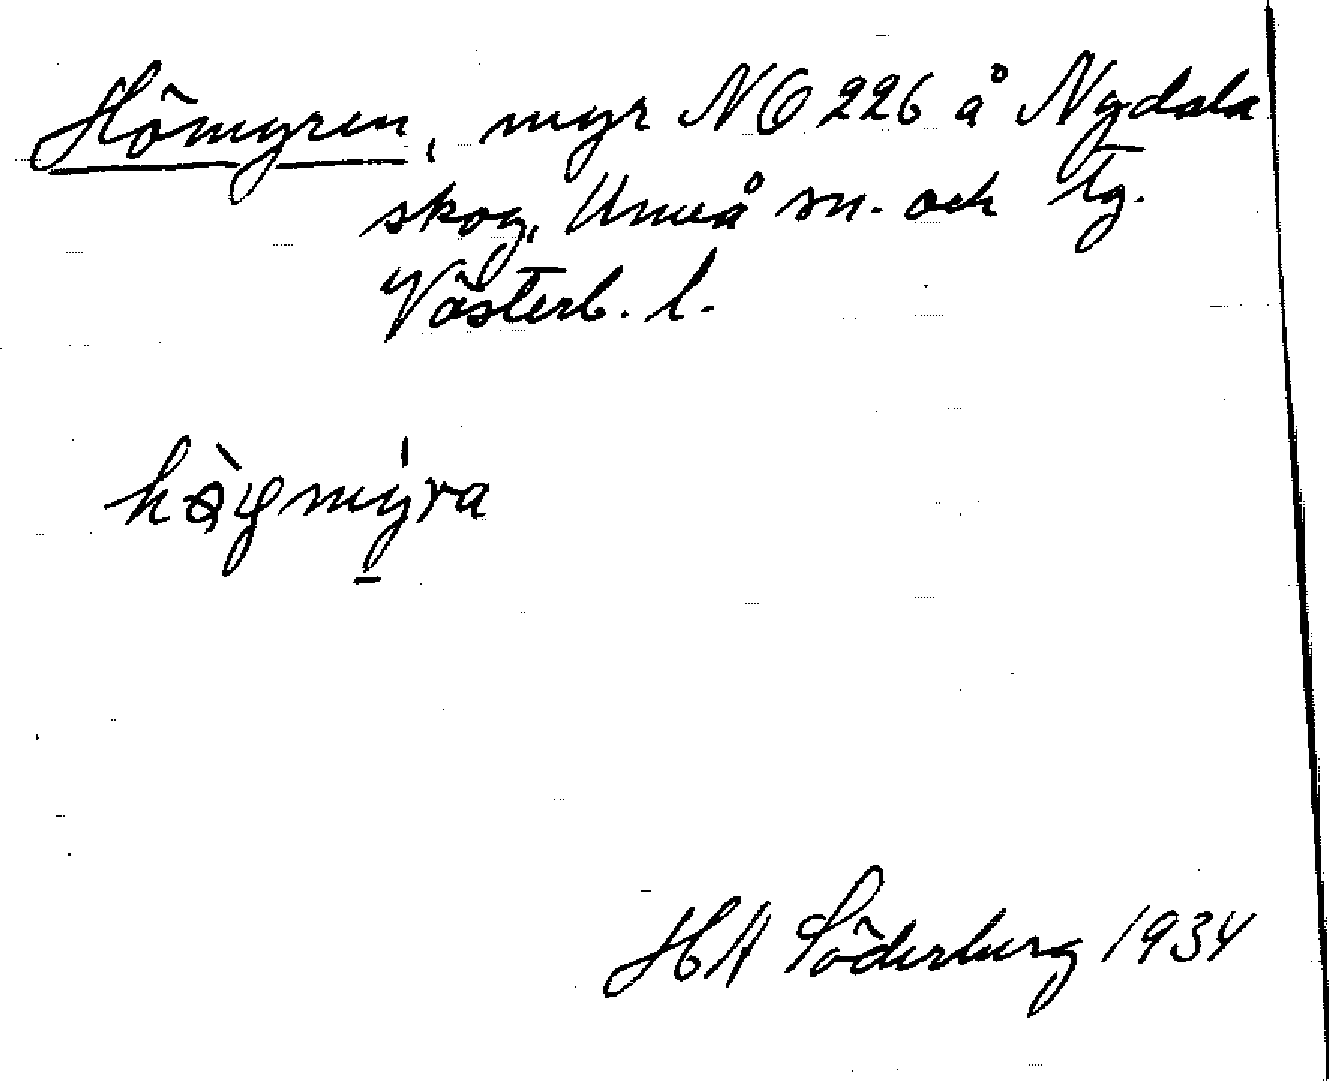 Hömyren, myr NO 226 å Nydala
skog, Umeå sn. och tg.
Västerb. l.
HA Söderberg 1934